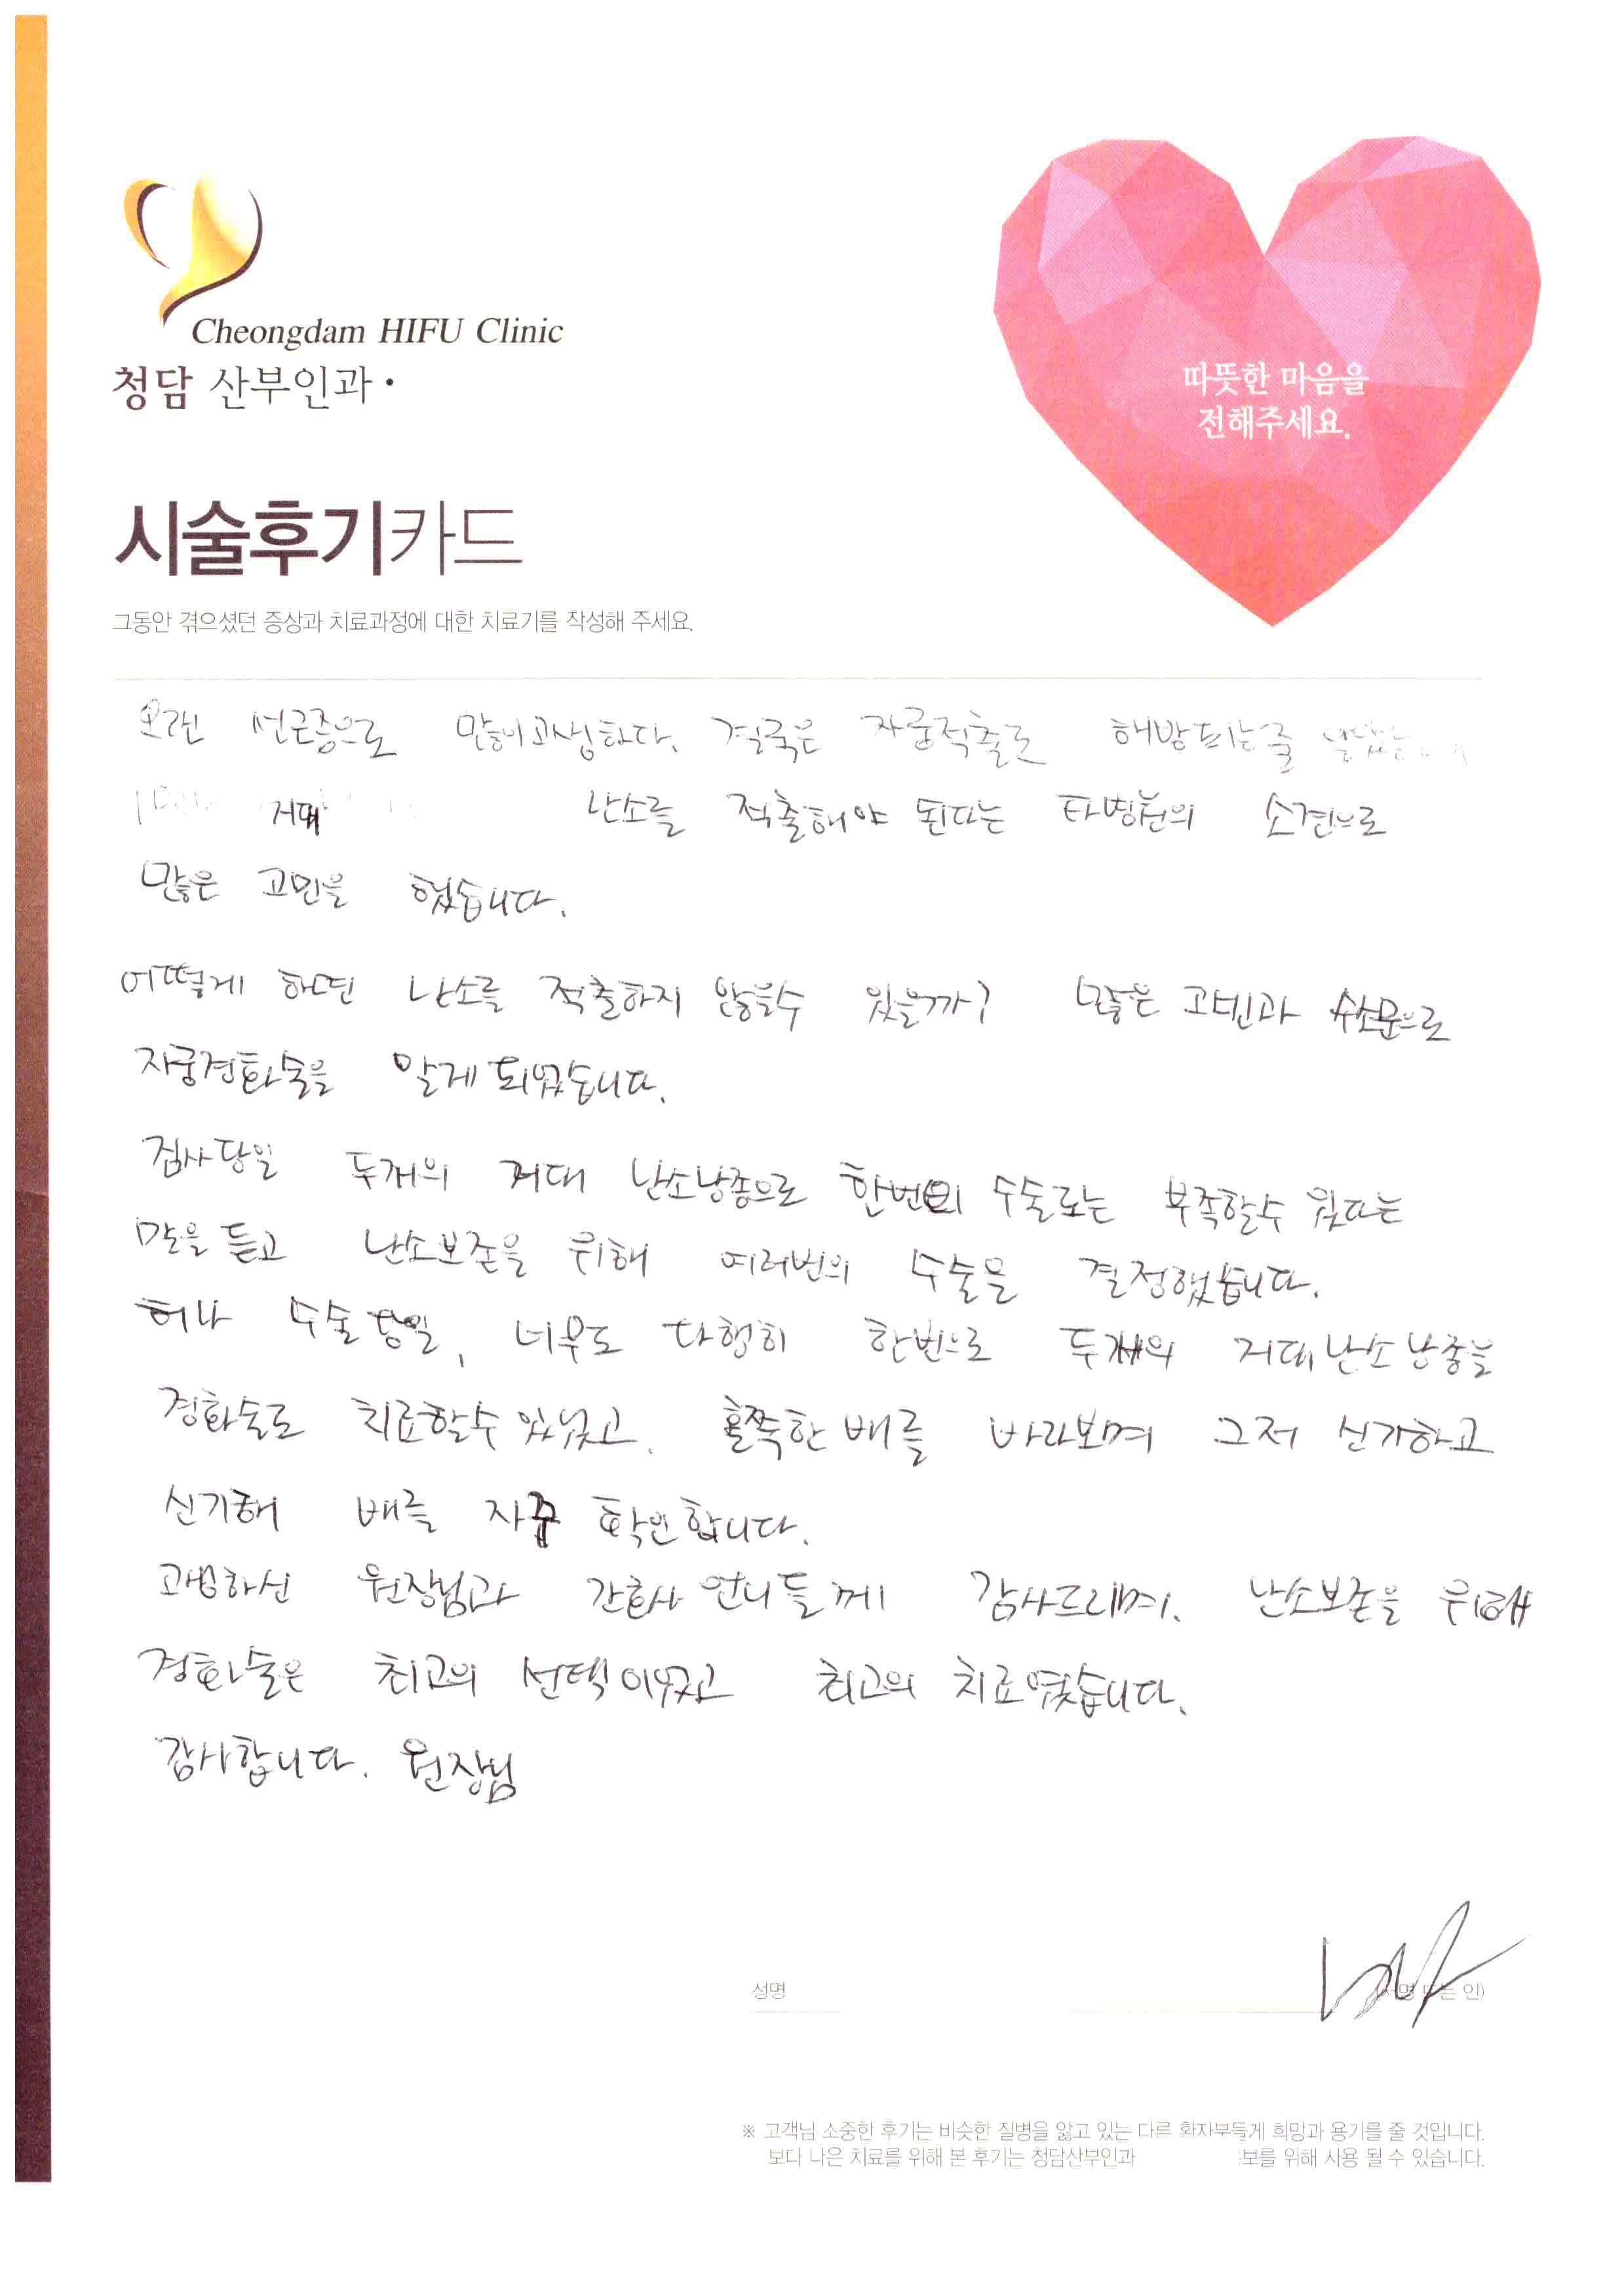 Cheongdam HIFU Clinic
청담 산부인과
따뜻한 마음을
전해주세요.
시술후기카드
그동안 겪으셨던 증상과 치료과정에 대한 치료기를 작성해 주세요.
오랜 선근증으로 많이 고생하다. 결국은 자궁적출로 해방되는줄
거대 난소를 적출해야 된다는 타병원의 소견으로
많은 고민을 했습니다.
어떻게 하면 난소를 적출하지 않을수 있을까? 많은 고민과 수소문으로
자궁경화술을 알게 되었습니다.
검사당일 두개의 거대 난소낭종으로 한번의 수술로는 부족할수 있다는
말을 듣고 난소보존을 위해 여러번의 수술을 결정했습니다.
허나 수술 당일, 너무도 다행히 한번으로 두개의 거대 난소 낭종을
경화술로 치료할수 있었고. 홀쭉한 배를 바라보며 그저 신기하고
신기해 배를 자꾸 확인합니다.
고생하신 원장님과 간호사 언니들께 감사드리며. 난소보존을 위해
경화술은 최고의 선택이었고 최고의 치료였습니다.
감사합니다. 원장님
성명
인)
※ 고객님 소중한 후기는 비슷한 질병을 앓고 있는 다른 환자부들게 희망과 용기를 줄 것입니다.
보다 나은 치료를 위해 본 후기는 청담산부인과 보를 위해 사용 될 수 있습니다.